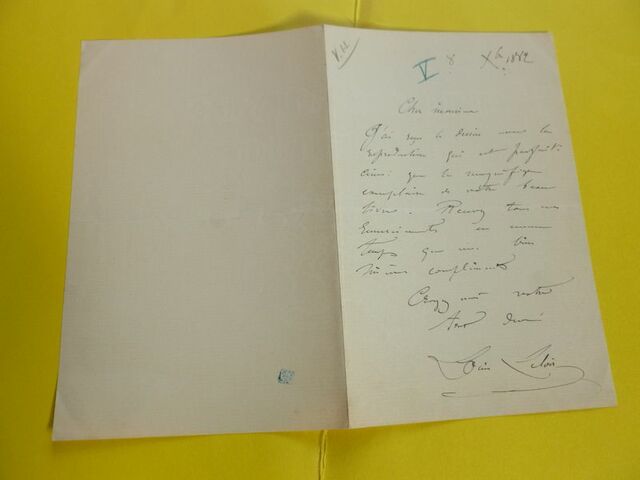 V. H.
V 8 Xbre 1882
Cher monsieur
J'ai reçu le dessin avec la
reproduction qui est parfaite
ainsi que le magnifique
exemplaire de votre beau
livre. Recevez tous mes
remerciements en même
temps que mes bien
sincères compliments
Croyez moi votre
tout dévoué
Louis Leloir